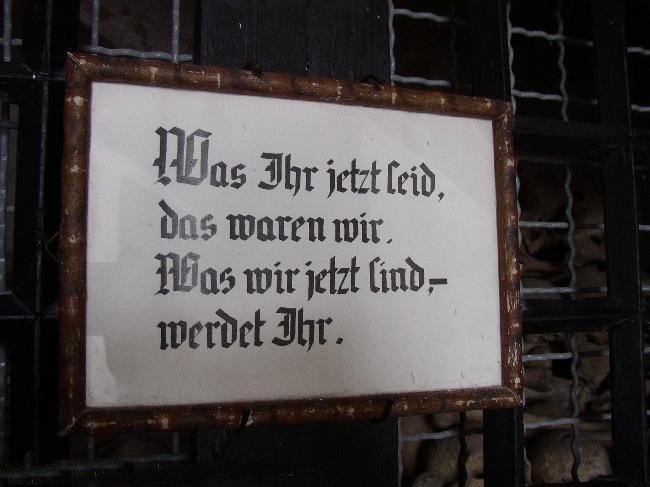 Was Ihr jetzt seid,
das waren wir.
Was wir jetzt sind,–
werdet Ihr.